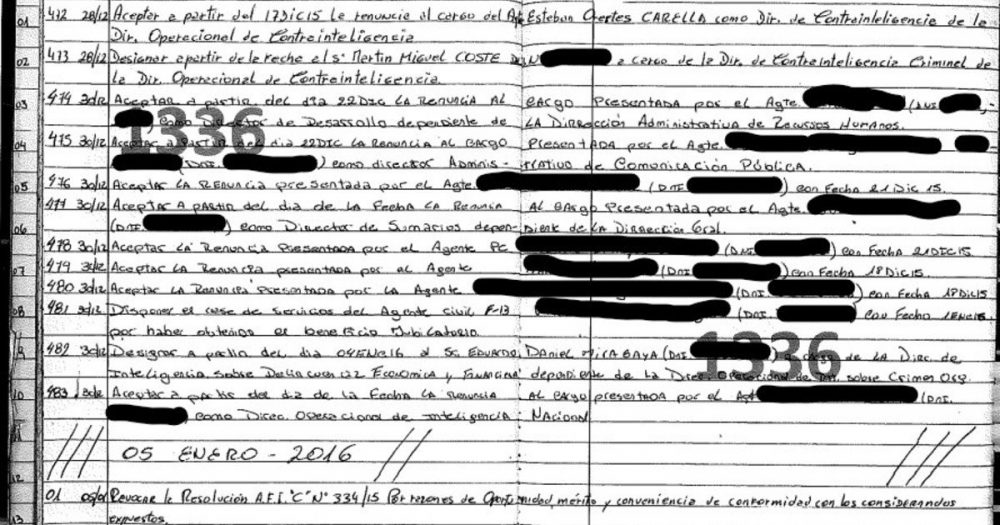 01 472 28/12 Aceptar a partir del 17DIC15 la renuncia al cargo del Agte Esteban Orestes CARELLA como Dir. de Contrainteligencia de la
Dir. Operacional de Contrainteligencia
02 473 28/12 Designar a partir de la fecha al Sr Martin Miguel COSTE a cargo de la Dir. de Contrainteligencia Criminal de
la Dir. Operacional de Contrainteligencia.
03 474 30/12 Aceptar a partir del dia 22DIC LA Renuncia AL CARGO PRESENTADA por el Agte. (DNI
) como Director de Desarrollo dependiente de LA Dirección Administrativa de Recursos Humanos.
1336
04 475 30/12 Aceptar a partir del dia 22DIC LA renuncia AL CARGO PRESENTADA por el Agte.
(DNI. ) como director Adminis- trativo de Comunicación Pública.
05 476 30/12 Aceptar LA Renuncia presentada por el Agte. (DNI ) con Fecha 21Dic 15.
477 30/12 Aceptar A partir del dia de la Fecha LA Renuncia AL CARGO Presentada por el Agte.
06 (DNI. ) como Director de Sumarios depen- diente de LA Dirección Gral.
478 30/12 Aceptar LA Renuncia Presentada por el Agente PC (DNI ) con Fecha 21DIC15
07 479 30/12 Aceptar LA Renuncia presentada por el Agente (DNI. ) con Fecha 18Dic15.
480 30/12 Aceptar LA Renuncia Presentada por LA Agente (DNI. ) con Fecha 18Dic15
08 481 30/12 Disponer el cese de servicios del Agente civil F-13 (DNI. ) con Fecha 1ENE16
por haber obtenido el beneficio Jubilatorio.
1336
9 482 30/12 Designar a partir del dia 04ENE16 al Sr. EDUARDO DANIEL MIRABAYA (DNI. ) a cargo de LA Direc. de
Inteligencia sobre Delincuencia Economica y Financiera dependiente de la Direc. Operacional de Int. sobre Crimen Org.
10 483 30/12 Aceptar a partir del dia de la Fecha LA renuncia AL CARGO presentada por el Agte (DNI.
) como Direc. Operacional de Inteligencia Nacional
11
05 ENERO - 2016
12
01 05/01 Revocar la Resolución A.F.I. "C" N° 334/15 Por razones de Oportunidad, mérito y conveniencia de conformidad con los considerandos
13 expuestos.